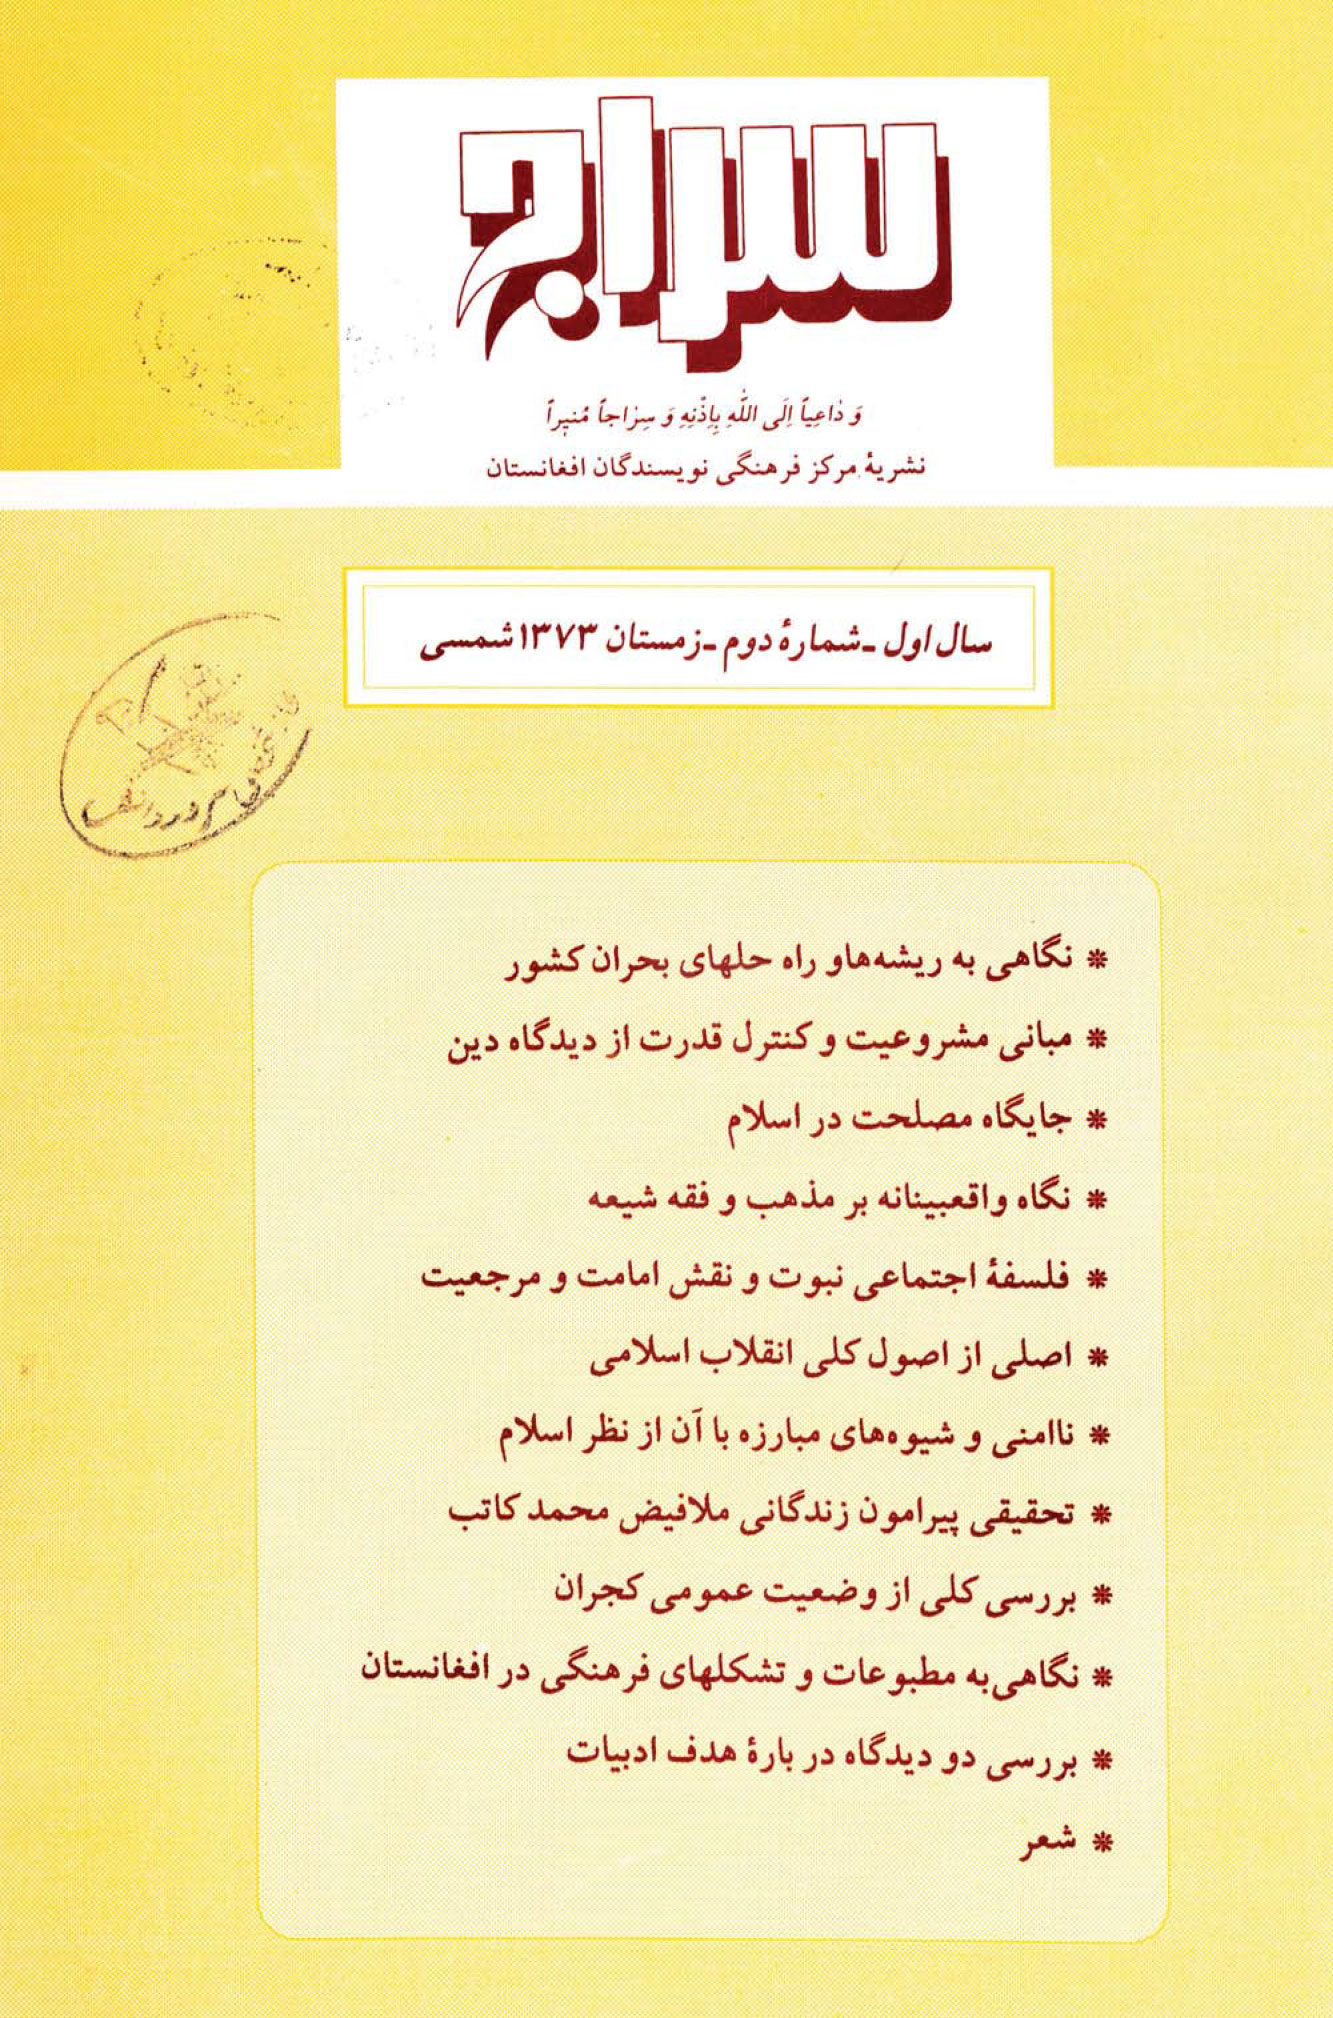 سراج
وَ دٰاعِياً اِلَى اللّٰهِ بِاِذْنِهِ وَ سِرٰاجاً مُنيراً
نشریهٔ مرکز فرهنگی نویسندگان افغانستان
سال اول ـ شمارهٔ دوم ـ زمستان ۱۳۷۳ شمسی
* نگاهی به ریشه‌هاو راه حلهای بحران کشور
* مبانی مشروعیت و کنترل قدرت از دیدگاه دین
* جایگاه مصلحت در اسلام
* نگاه واقعبینانه بر مذهب و فقه شیعه
* فلسفهٔ اجتماعی نبوت و نقش امامت و مرجعیت
* اصلی از اصول کلی انقلاب اسلامی
* ناامنی و شیوه‌های مبارزه با آن از نظر اسلام
* تحقیقی پیرامون زندگانی ملافیض محمد کاتب
* بررسی کلی از وضعیت عمومی کجران
* نگاهی به مطبوعات و تشکلهای فرهنگی در افغانستان
* بررسی دو دیدگاه در بارهٔ هدف ادبیات
* شعر